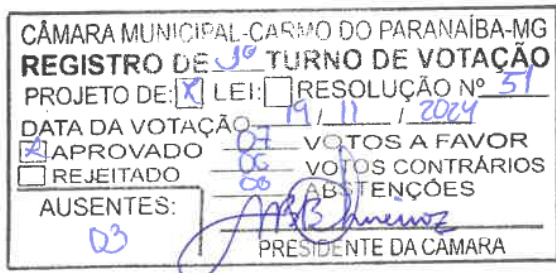 CÂMARA MUNICIPAL-CARMO DO PARANAÍBA-MG
REGISTRO DE 1º TURNO DE VOTAÇÃO
PROJETO DE: [X] LEI: [ ] RESOLUÇÃO Nº 51
DATA DA VOTAÇÃO 19 / 11 / 2024
[X] APROVADO 07 VOTOS A FAVOR
[ ] REJEITADO 00 VOTOS CONTRÁRIOS
00 ABSTENÇÕES
AUSENTES:
03
PRESIDENTE DA CÂMARA